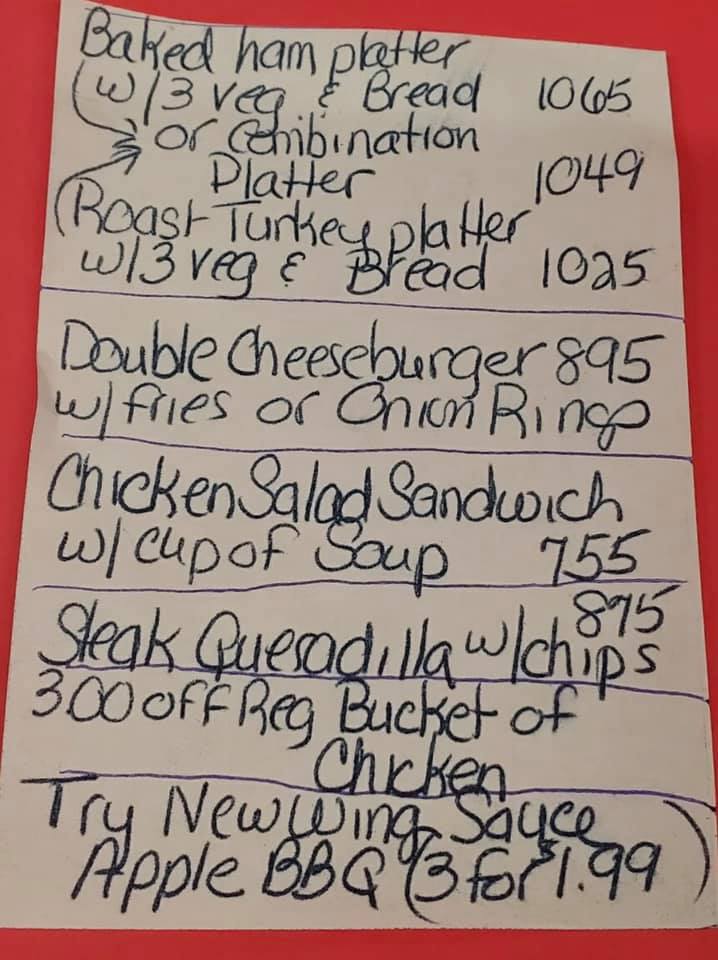 Baked ham platter
w/3 veg & Bread 1065
or Combination
Platter 1049
Roast Turkey platter
w/3 veg & Bread 1025
Double Cheeseburger 895
w/ fries or Onion Rings
Chicken Salad Sandwich
w/ cup of Soup 755
895
Steak Quesadilla w/chips
300 off Reg Bucket of
Chicken
Try New Wing Sauce
Apple BBQ (3 for $1.99)